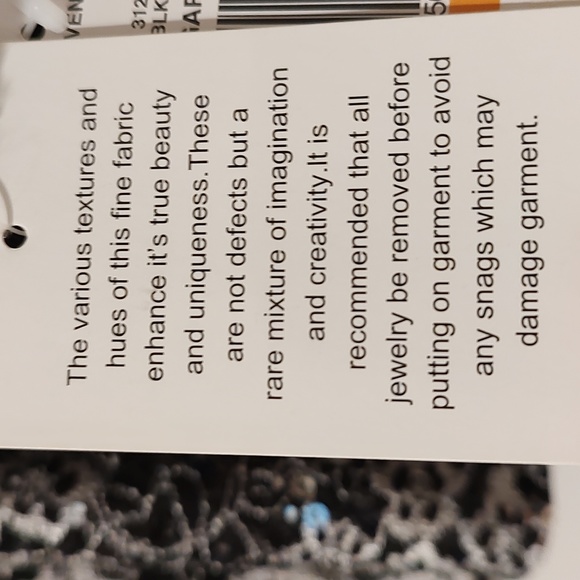 The various textures and
hues of this fine fabric
enhance it's true beauty
and uniqueness.These
are not defects but a
rare mixture of imagination
and creativity.It is
recommended that all
jewelry be removed before
putting on garment to avoid
any snags which may
damage garment.
VEN
312
BLK